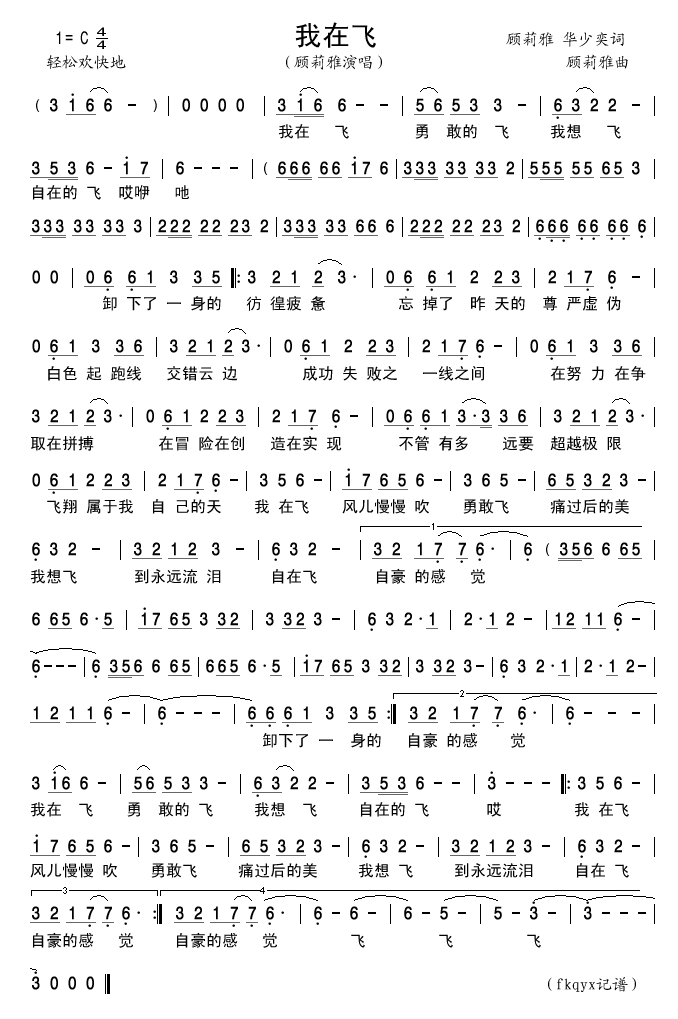 1= C 4/4 我在飞 顾莉雅 华少奕词
轻松欢快地 (顾莉雅演唱) 顾莉雅曲
( 3 i 6 6 - ) | 0 0 0 0 | 3 i 6 6 - | 5 6 5 3 3 - | 6 3 2 2 - |
我在 飞 勇 敢的 飞 我想 飞
3 5 3 6 - i 7 | 6 - - - | ( 666 66 i7 6 | 333 33 33 2 | 555 55 65 3 |
自在的 飞 哎咿 吔
333 33 33 3 | 222 22 23 2 | 333 33 66 6 | 222 22 23 2 | 666 66 66 6 |
0 0 | 0 6 6 1 3 35 ‖: 3 21 2 3 · | 0 6 6 1 2 23 | 2 1 7 6 - |
卸 下了 一 身的 彷 徨疲 惫 忘 掉了 昨 天的 尊 严虚 伪
0 61 3 36 | 3 21 23 · | 0 61 2 23 | 2 17 6 - | 0 61 3 36 |
白色 起 跑线 交错云 边 成功 失 败之 一线之间 在努 力 在争
3 21 23 · | 0 61 223 | 2 17 6 - | 0 661 3·3 36 | 3 21 23 · |
取在拼搏 在冒 险在创 造在实 现 不管 有多 远要 超越极 限
0 61 2 23 | 2 17 6 - | 3 5 6 - | i7 65 6 - | 3 6 5 - | 65 323 - |
飞翔 属于我 自 己的天 我 在飞 风儿慢慢 吹 勇敢飞 痛过后的美
6 3 2 - | 32 12 3 - | 6 3 2 - | 1 32 17 7 6 · - | 6 ( 356 6 65 |
我想飞 到永远流 泪 自在飞 自豪 的感 觉
6 65 6·5 | i7 65 3 32 | 3 32 3 - | 6 3 2·1 | 2·1 2 - | 12 11 6 - |
6 - - - | 6 356 6 65 | 665 6·5 | i7 65 3 32 | 3 32 3 - | 6 3 2·1 | 2·1 2 - |
1 2 1 1 6 - | 6 - - - | 6 6 6 1 3 35 :‖ 2 3 2 17 7 6 · | 6 - - - |
卸下了 一 身的 自豪 的感 觉
3 i6 6 - | 56 53 3 - | 6 32 2 - | 3 53 6 - - | 3 - - - ‖: 3 5 6 - |
我在 飞 勇 敢的 飞 我想 飞 自在的 飞 哎 我 在飞
i 7 6 5 6 - | 3 6 5 - | 65 323 - | 6 3 2 - | 32 123 - | 6 3 2 - |
风儿慢慢 吹 勇敢飞 痛过后的美 我想 飞 到永远流泪 自在 飞
3 32 17 7 6 · :‖ 4 32 17 7 6 · | 6 - 6 - | 6 - 5 - | 5 - 3 - | 3 - - - |
自豪的感 觉 自豪的感 觉 飞 飞 飞
3 0 0 0 ‖ (fkqyx记谱)